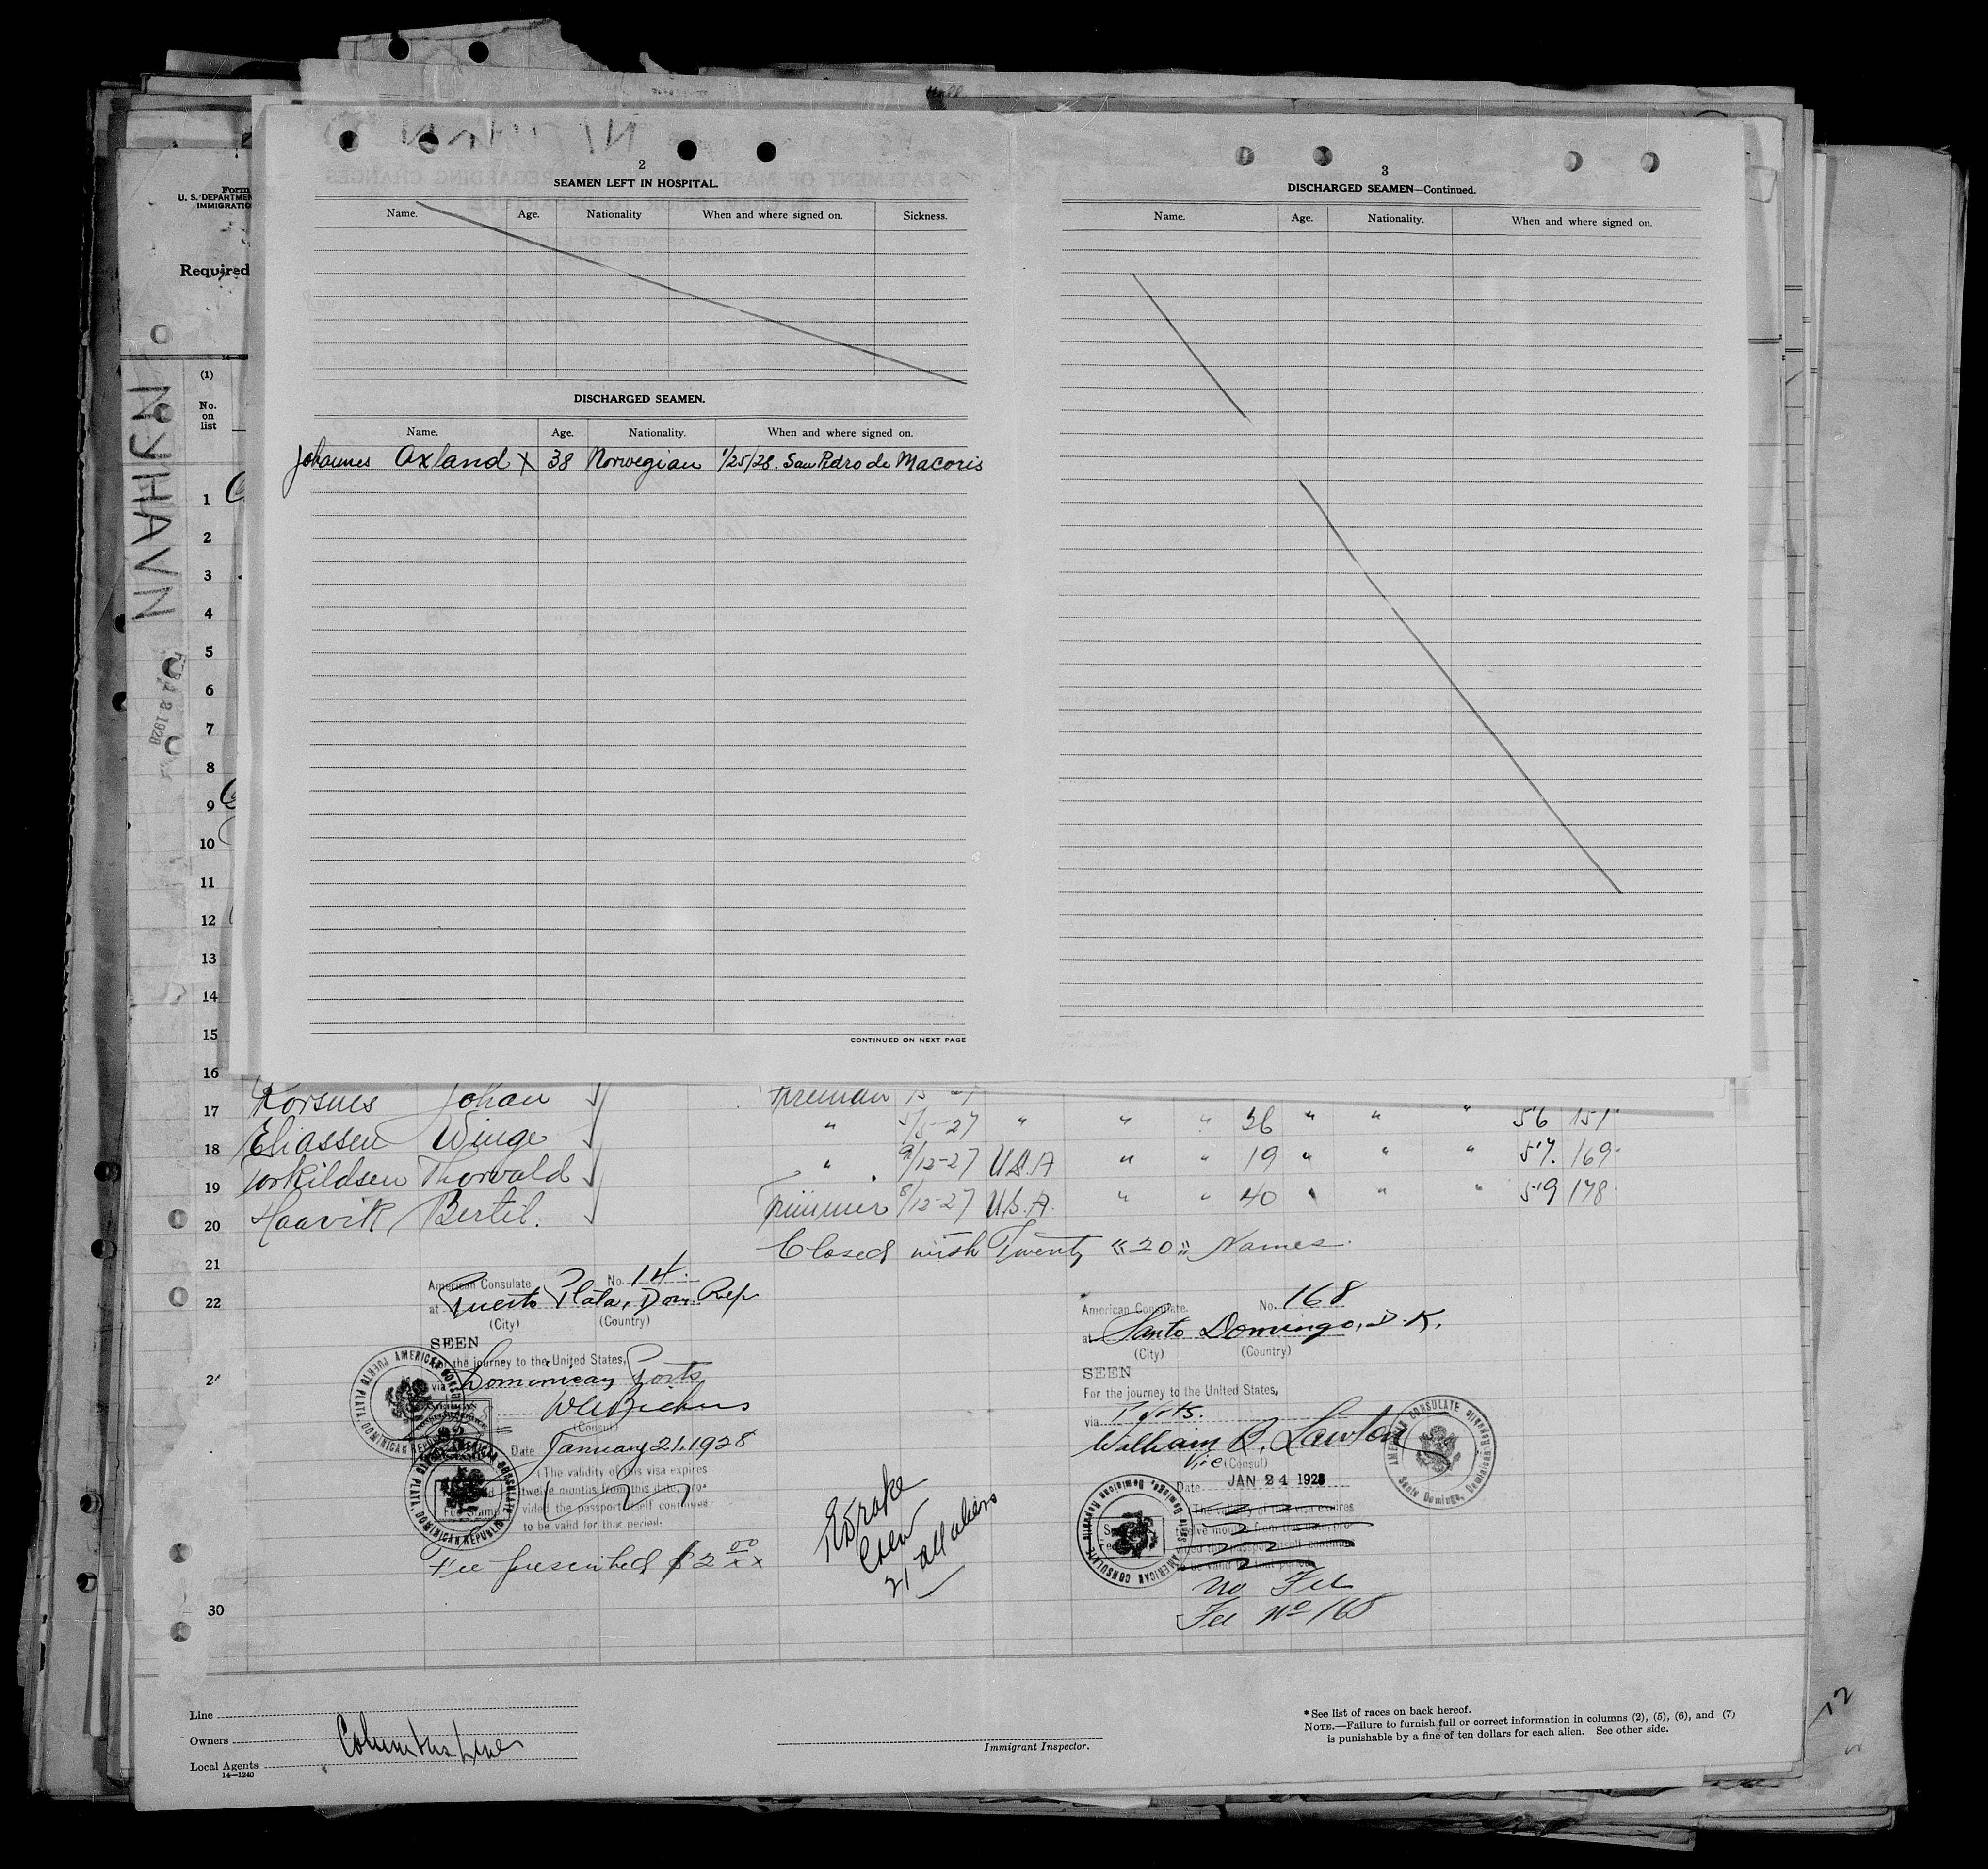 2
SEAMEN LEFT IN HOSPITAL.
Name. Age. Nationality When and where signed on. Sickness.
DISCHARGED SEAMEN.
Name. Age. Nationality. When and where signed on.
Johannes Axland X 38 Norwegian 1/25/28. San Pedro de Macoris
CONTINUED ON NEXT PAGE
3
DISCHARGED SEAMEN—Continued.
Name. Age. Nationality. When and where signed on.
Form
U. S. DEPARTMEN
IMMIGRATIO
Required
NYHAVN
1928
(1)
No.
on
list
1
2
3
4
5
6
7
8
9
10
11
12
13
14
15
16
17 Korsnes Johan Fireman
18 Eliassen Winge " 5/5-27 " " " 36 " " " 5'6 151
19 Torkildsen Thorvald " 9/12-27 U.S.A " " 19 " " " 5'7. 169
20 Haavik Bertil. Trimmer 8/12-27 U.S.A. " " 40 " " " 5'9 178
21 Closed with Twenty "20" Names.
22
30
American Consulate No. 14.
at Puerto Plata, Dom. Rep
(City) (Country)
SEEN
the journey to the United States,
via Dominican Ports
(Consul)
Date January 21, 1928
(The validity of this visa expires
twelve months from this date, pro-
vided the passport itself continues
to be valid for that period.
Fee prescribed $2 00
AMERICAN CONSULATE PUERTO PLATA, DOMINICAN REPUBLIC
AMERICAN CONSULATE PUERTO PLATA, DOMINICAN REPUBLIC
Crew
21 all aliens
American Consulate. No. 168
at Santo Domingo, D. R.
(City) (Country)
SEEN
For the journey to the United States,
via Ports.
William B. Lawton
Vice (Consul)
Date JAN 24 1928
(The validity of this visa expires
twelve months from this date, pro-
vided the passport itself continues
to be valid for that period.
No Fee
Fee No 168
AMERICAN CONSULATE Santo Domingo, Dominican Republic
AMERICAN CONSULATE Santo Domingo, Dominican Republic
Line
Owners Columbus Line
Local Agents
14—1240
Immigrant Inspector.
* See list of races on back hereof.
NOTE.—Failure to furnish full or correct information in columns (2), (5), (6), and (7)
is punishable by a fine of ten dollars for each alien. See other side.
12